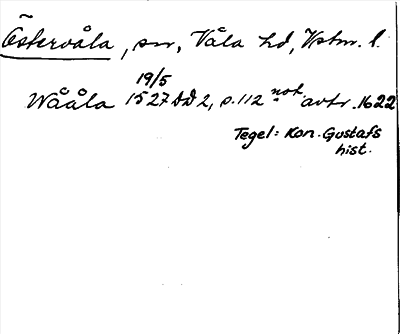 Östervåla, sn, Våla hd, Vstm. l.
19/5
Wååla 1527 DD 2, s. 112 not. avtr. 1622
Tegel: Kon. Gustafs
hist.